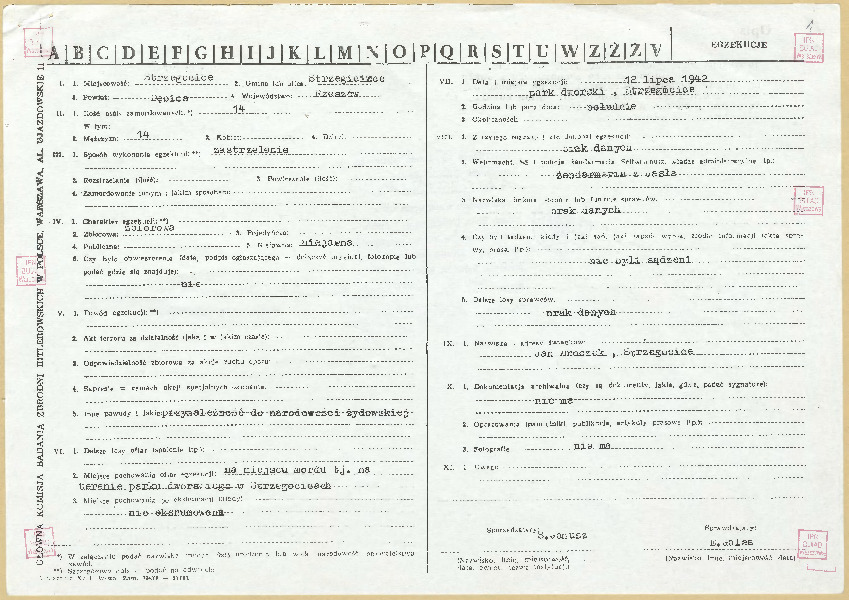 A B C D E F G H I J K L M N O P Q R S T U W Z Ż Ź V
EGZEKUCJE
GŁÓWNA KOMISJA BADANIA ZBRODNI HITLEROWSKICH W POLSCE, WARSZAWA, AL. UJAZDOWSKIE 11
I. 1. Miejscowość: Strzegocice 2. Gmina lub ulica: Strzegicice
3. Powiat: Dębica 4. Województwo: Rzeszów
II. 1. Ilość osób zamordowanych: *) 14
W tym:
2. Mężczyzn: 14 3. Kobiet: 4. Dzieci:
III. 1. Sposób wykonania egzekucji: **) zastrzelenie
2. Rozstrzelanie (ilość): 3. Powieszenie (ilość):
4. Zamordowanie innym i jakim sposobem:
IV. 1. Charakter egzekucji: **)
2. Zbiorowa: zbiorowa 3. Pojedyńcza:
4. Publiczna: 5. Niejawna: niejawna
6. Czy było obwieszczenie, podpis ogłaszającego — dołączyć oryginał, fotokopię lub
podać gdzie się znajduje:
nie
V. 1. Powód egzekucji: **)
2. Akt terroru za działalność (jaką i w jakim czasie):
3. Odpowiedzialność zbiorowa za akcje ruchu oporu:
4. Stracenie w ramach akcji specjalnych
5. Inne powody i jakie: przynależność do narodowości żydowskiej
VI. 1. Dalsze losy ofiar
2. Miejsce pochowania ofiar egzekucji: na miejscu mordu tj. na
terenie parku dworskiego w Strzegocicach
3. Miejsce pochowania po ekshumacji
nie ekshumowano
VII. 1. Data i miejsce egzekucji: 12 lipca 1942
park dworski, Strzegocice
2. Godzina lub pora dnia: południe
3. Okoliczności:
VIII. 1. Z czyjego rozkazu i kto dokonał egzekucji:
brak danych
2. Wehrmacht, SS i policja, żandarmeria, Selbstschutz, władze administracyjne itp.:
żandarmeria z Jasła
3. Nazwiska, imiona, stopnie lub funkcje sprawców:
brak danych
4. Czy byli sądzeni, kiedy i
nie byli sądzeni
5. Dalsze losy sprawców:
brak danych
IX. 1. Nazwiska i adresy świadków:
Jan Mroczek, Strzegocice
X. 1. Dokumentacja archiwalna (czy są dokumenty, jakie, gdzie, podać sygnaturę):
nie ma
2. Opracowania (pamiętniki, publikacje, artykuły prasowe itp.):
3. Fotografie nie ma
XI. 1. Uwagi
Sporządzający: S. Janusz
Sprawdzający:
(Nazwisko, imię, miejscowość,
data, pełna nazwa instytucji)
(Nazwisko, imię, miejscowość, data)
*) W załączeniu podać nazwiska, imiona, daty urodzenia lub wiek, narodowość, przynależność
zawód.
**) Szczegółowe dane podać na odwrocie